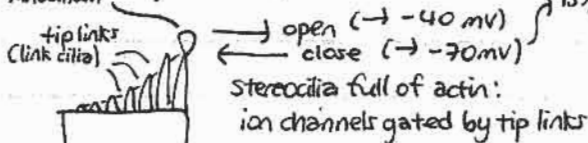 tip links
(link cilia)
open (→ -40 mV)
close (→ -70mV)
stereocilia full of actin:
ion channels gated by tip links